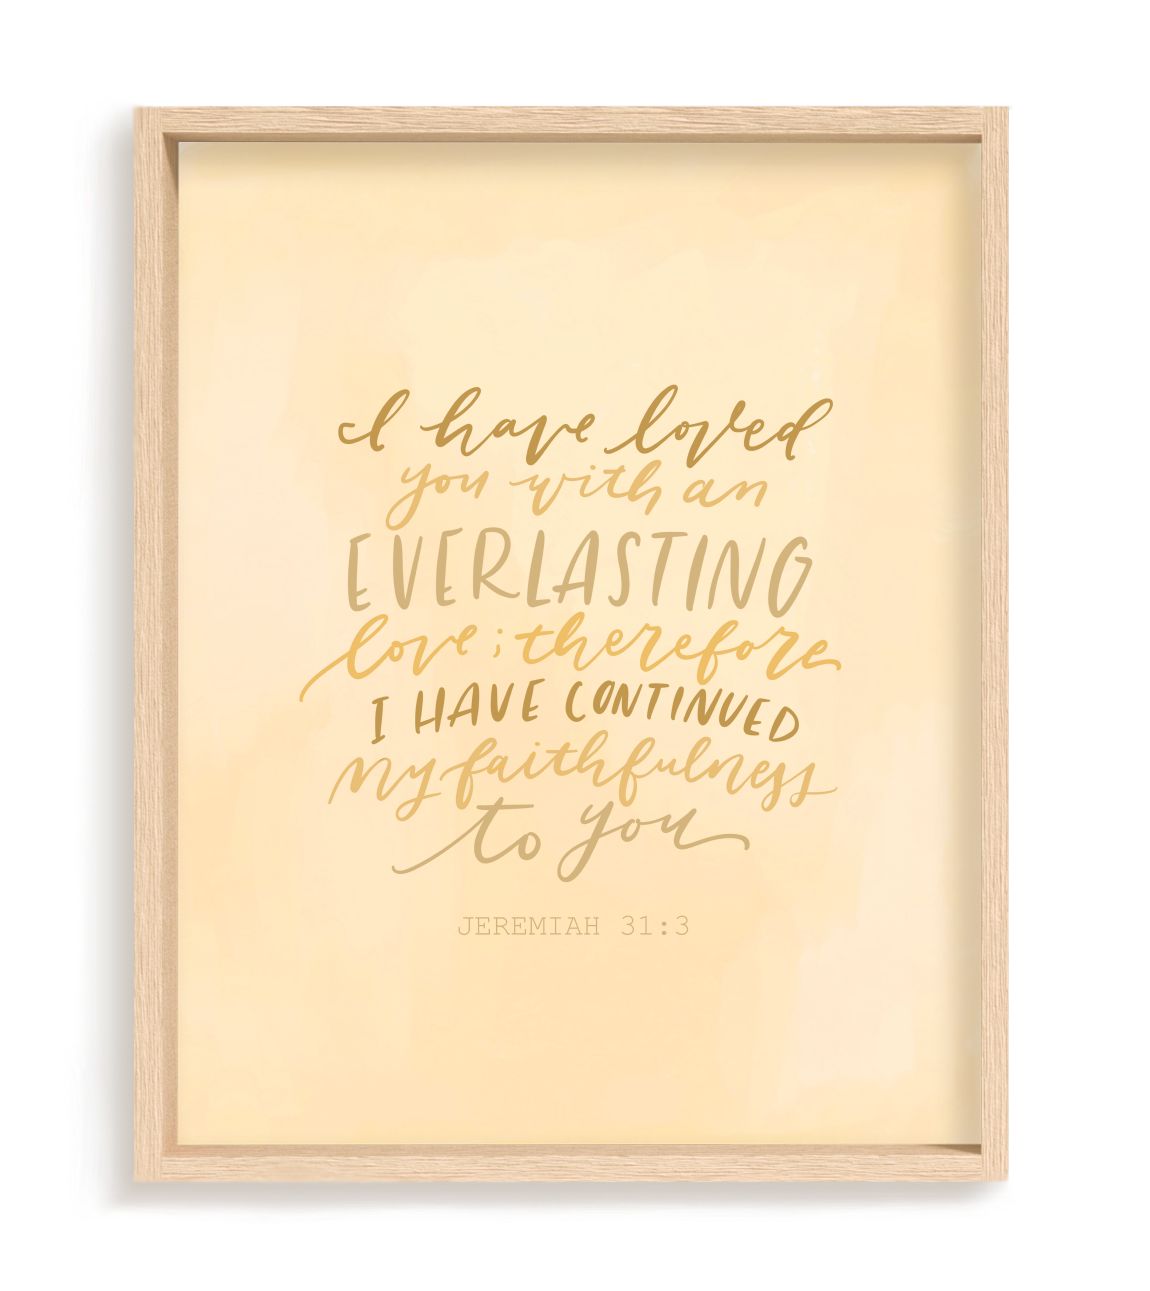 I have loved
you with an
EVERLASTING
love; therefore
I HAVE CONTINUED
my faithfulness
to you
JEREMIAH 31:3